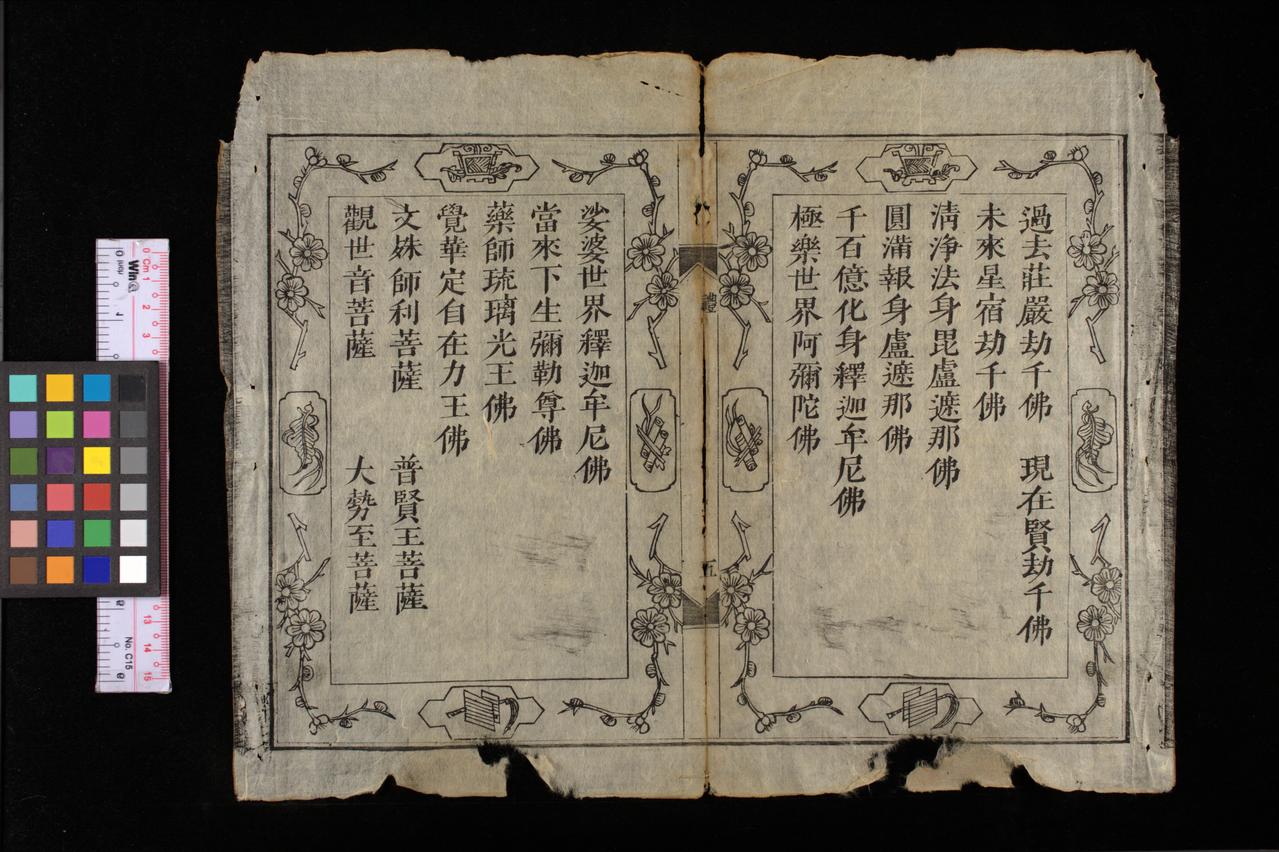 過去莊嚴劫千佛　現在賢劫千佛
未來星宿劫千佛
淸淨法身毘盧遮那佛
圓滿報身盧遮那佛
千百億化身釋迦牟尼佛
極樂世界阿彌陀佛
禮
五
娑婆世界釋迦牟尼佛
當來下生彌勒尊佛
藥師琉璃光王佛
覺華定自在力王佛
文姝師利菩薩　普賢王菩薩
觀世音菩薩　大勢至菩薩
Cm 1 2 3
13 14 15
No. C15